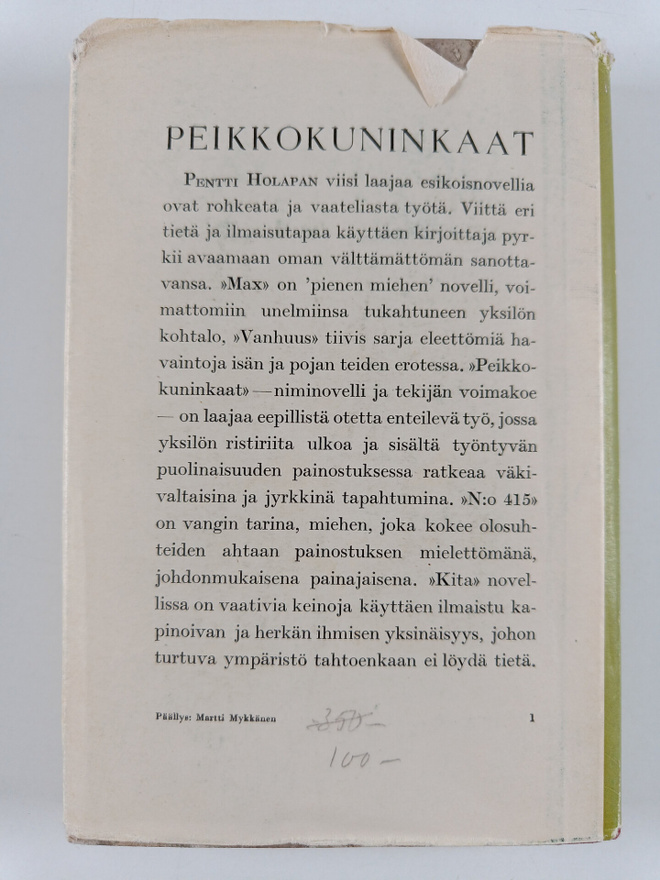 PEIKKOKUNINKAAT
PENTTI HOLAPAN viisi laajaa esikoisnovellia
ovat rohkeata ja vaateliasta työtä. Viittä eri
tietä ja ilmaisutapaa käyttäen kirjoittaja pyr-
kii avaamaan oman välttämättömän sanotta-
vansa. »Max» on 'pienen miehen' novelli, voi-
mattomiin unelmiinsa tukahtuneen yksilön
kohtalo, »Vanhuus» tiivis sarja eleettömiä ha-
vaintoja isän ja pojan teiden erotessa. »Peikko-
kuninkaat» — niminovelli ja tekijän voimakoe
— on laajaa eepillistä otetta enteilevä työ, jossa
yksilön ristiriita ulkoa ja sisältä työntyvän
puolinaisuuden painostuksessa ratkeaa väki-
valtaisina ja jyrkkinä tapahtumina. »N:o 415»
on vangin tarina, miehen, joka kokee olosuh-
teiden ahtaan painostuksen mielettömänä,
johdonmukaisena painajaisena. »Kita» novel-
lissa on vaativia keinoja käyttäen ilmaistu ka-
pinoivan ja herkän ihmisen yksinäisyys, johon
turtuva ympäristö tahtoenkaan ei löydä tietä.
Päällys: Martti Mykkänen 1
350-
100-